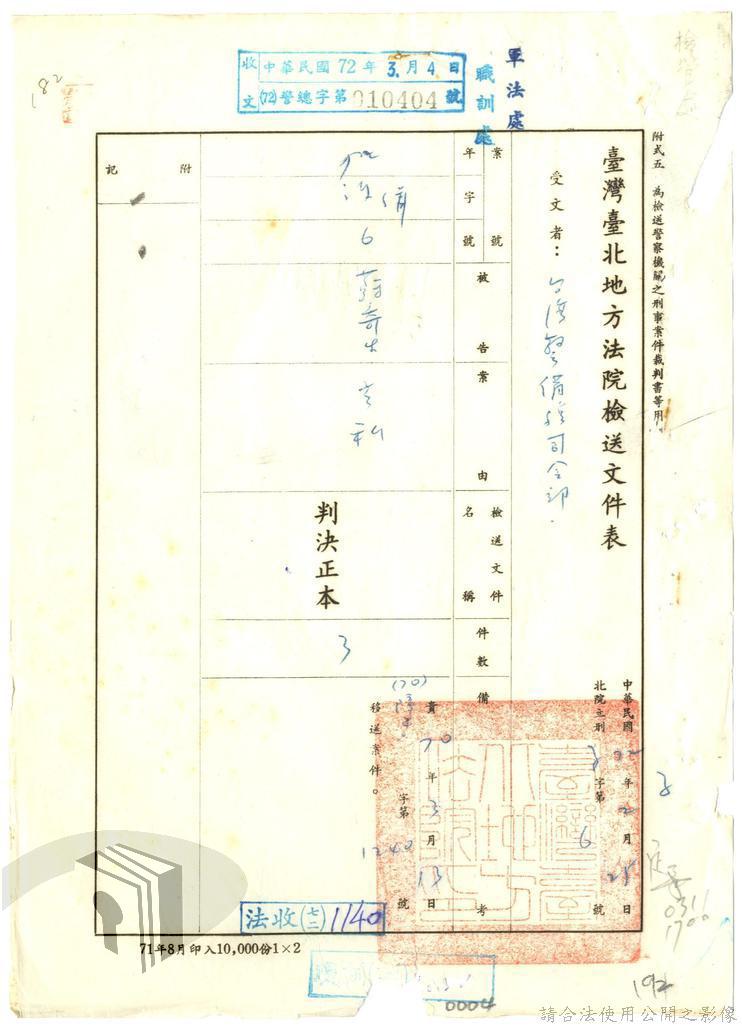 收文 中華民國72年3月4日
(72)警總字第010404號
軍法處
職訓處
182
附式五 為檢送警察機關之刑事案件裁判書等用
臺灣臺北地方法院檢送文件表
受文者：台灣警備總司令部
中華民國 年2月25日
北院立刑 字第6號
案號
年字號
6
被告
案由
檢送文件名稱
判決正本
件數
3
備考
貴 70年3月13日
(70)
字第1240號
移送案件。
附記
法收(七二)1140
71年8月印入10,000份1×2
0311
1700
192
0004
請合法使用公開之影像